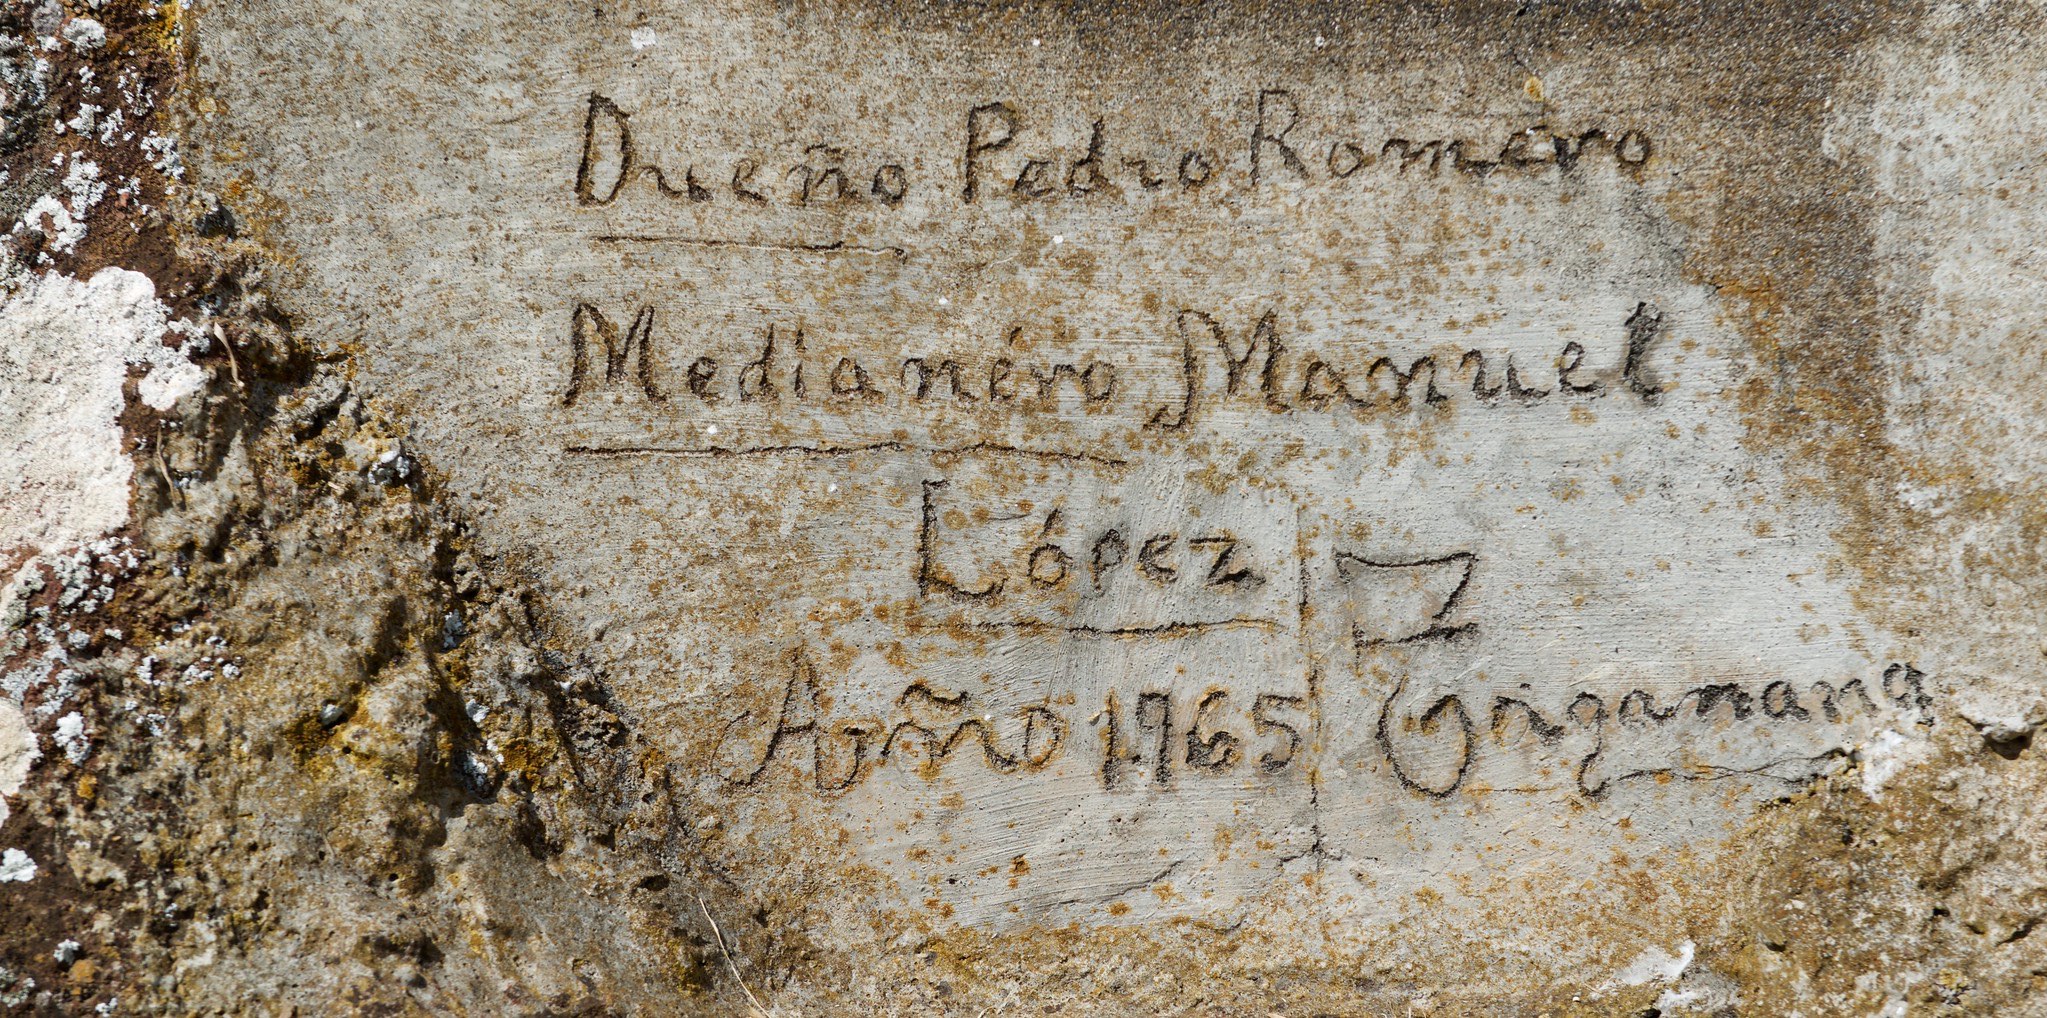 Dueño Pedro Romero
Medianéro Manuel
López
Año 1965 Origanana